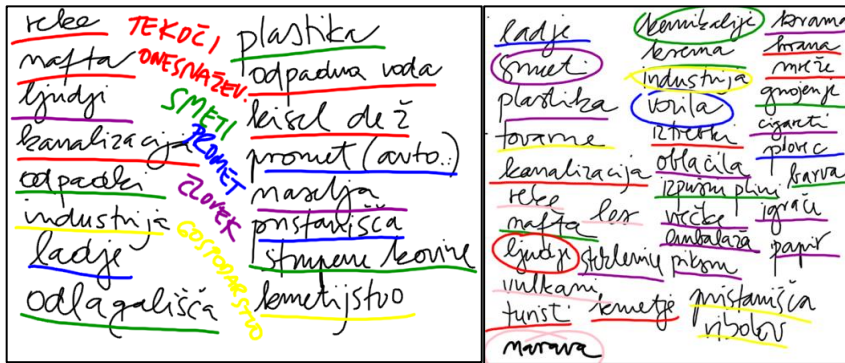 reke
nafta
ljudji
kanalizacija
odpadki
industrija
ladje
odlagališča
TEKOČI
ONESNAŽEV.
SMETI
PROMET
ČLOVEK
GOSPODARSTVO
plastika
odpadna voda
kisel dež
promet (avto..)
naselja
pristanišča
strupene kovine
kmetijstvo
ladje
smeti
plastika
tovarne
kanalizacija
reke les
nafta
ljudje steklenice
vulkani
turisti kmetje
narava
kemikalije
krema
industrija
vozila
iztrebki
oblačila
izpušni plini
vrečke
embalaža
piksni
pristanišča
ribolov
hrana
mreže
gnojenje
cigareti
plovec
barva
igrače
papir